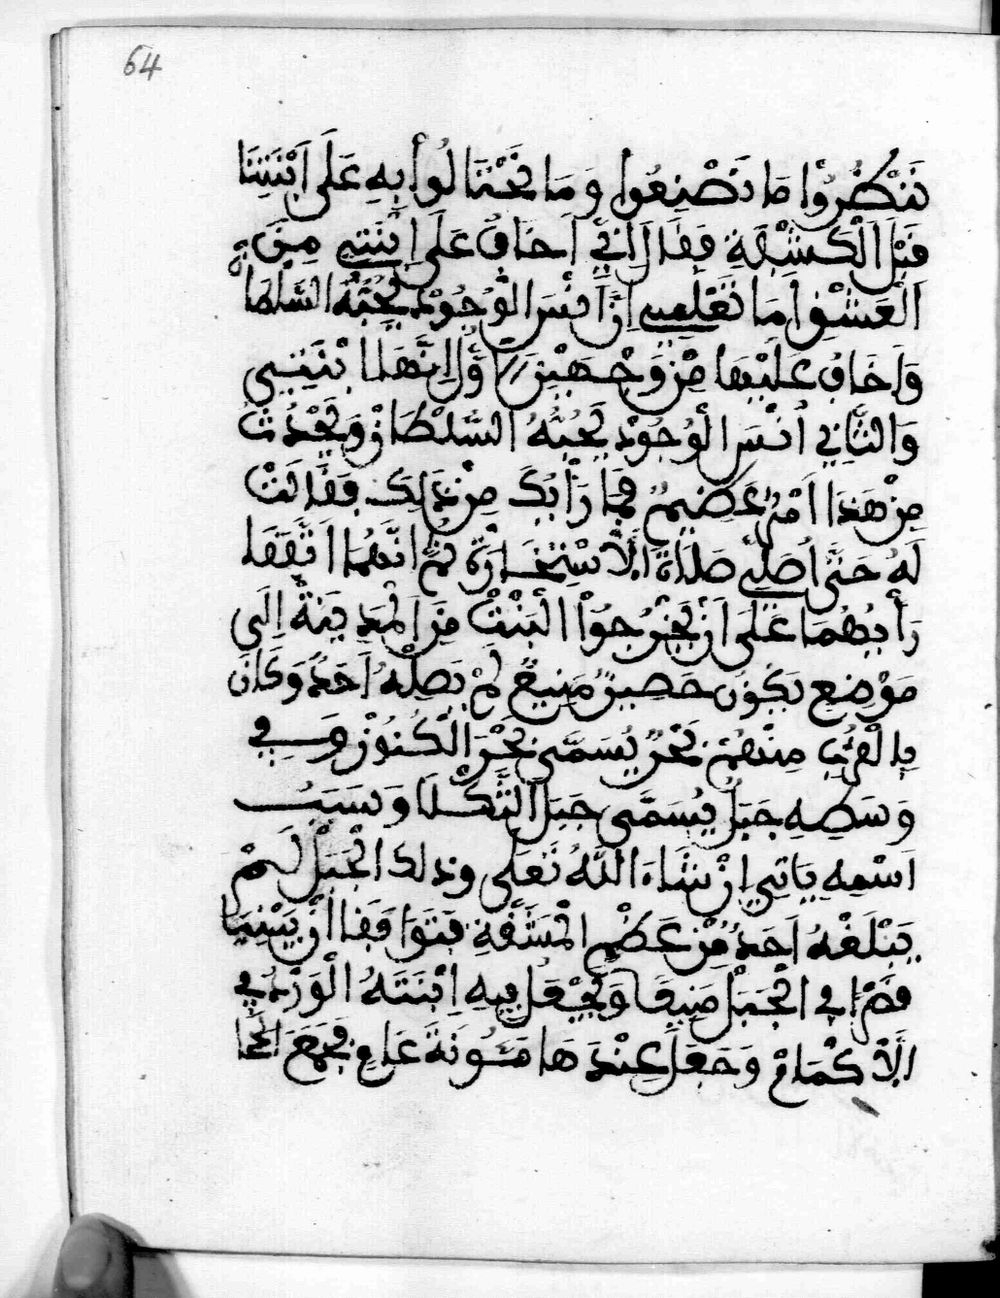 64
تَنْظُرُواْ مَا تَصْنِعُواْ وَمَا تَحْتَالُواْ بِهِ عَلَى ابْنَتِنَا
قَبْلَ الْكَشْفَةِ فَقَالَ اِنِّي اَخَافُ عَلَى ابْنَتِي مِنَ
الْعَشْقِ اَمَا تَعْلَمِي اِنَّ اَنْسَ الْوُجُودْ يُحِبُّهُ السُّلْطَا
وَاَخَافُ عَلَيْهَا مِنْ وَجْهَيْنِ اَوَّلاِنَّهَا ابْنَتِي
وَالثَّانِي اُنْسَ الْوُجُودْ يُحِبُّهُ السُّلْطَانْ وَيَحْدُثُ
مِنْ هَذَا اَمْرٌ عَضِيمٌ فَمَا رَأْيُكَ مِنْ ذَلِكَ فَقَالَتْ
لَهُ حَتَّى اُصَلِّي صَلَاةَ الْاَسْتِخَارَةْ ثُمَّ انَّهُمَا اتَّفَقَا
رَأْيُهُمَا عَلَى اَنْ يُخْرِجُواْ الْبَنْتْ مِنَ الْمَدِينَةْ اِلَى
مَوْضِعِ يَكُونَ حَصِينٌ مَنِيعٌ لَمْ يَصِلْهُ اَحَدْ وَكَانَ
بِالْقُرْبِ مِنْهُمْ بَحْرٌ يُسَمَّى بَحْرَ الْكُنُوزْ وَفِي
وَسَطِهِ جَبَلٌ يُسَمَّى جَبَلَ الثَّكْلَا وَسَبَبُ
اَسْمِهِ يَاتِي اِنْ شَاءَ اللَّهُ تَعَلَى وَذلك الْجَبَلْ لَمْ
يَبْلَغْهُ اَحَدٌ مِنْ عَظْمِ الْمَشَقَّةِ فَتَوَافَقَا اَنْ يَبْنِيَا
قَصْرًا فِي الْجَبَلْ مَنِيعًا وَيَجْعَلُ فِيهِ اِبْنَتَهُ الْوَرْدُ فِي
الْاَكْمَامْ وَجَعَلَ عِنْدَهَا مَئُونَةَ عَامٍ فَجَمَعَ